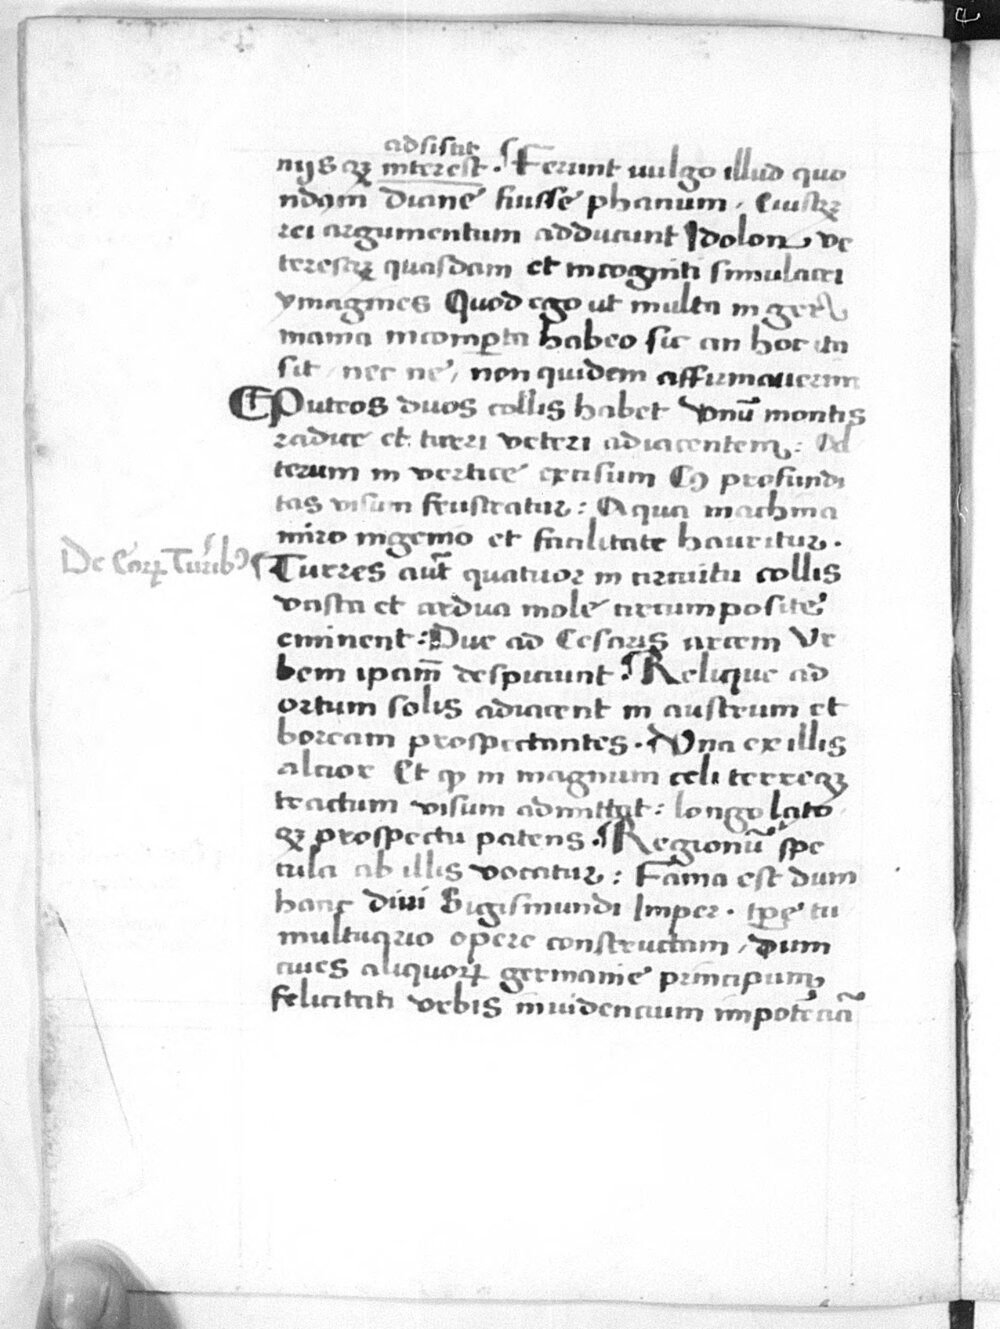 adsistit
nijsqꝫ interest. Ferunt uulgo illud quo
ndam Diane fuisse phanum, Eiusqꝫ
rei argumentum adducunt Idolon, ve
teresqꝫ quasdam et incogniti simulacri
ymagines Quod ego ut multa in ger
mania incomp̲ta habeo sic an hoc ita
sit, nec ne, non quidem affirmauerim
Puteos duos collis habet Vnū montis
radice et turri veteri adiacentem: Al
terum in vertice excisum Cꝰ profundi
tas visum frustratur: Aqua machina
miro ingenio et facilitate hauritur.
De Eorꝝ Turribꝰ
Turres aut̄ quatuor in circuitu collis
vasta et ardua mole circumposite
eminent: Due ad Cesaris arcem Vr
bem ipam̄ despiciunt. Relique ad
ortum solis adiacent in austrum et
boream prospectantes. Vna ex illis
alcior Et qꝫ in magnum celi terreqꝫ
tractum visum admittat: longo lato
qꝫ prospectu patens. Regionū spe
cula ab illis vocatur: Fama est dum
hanc Diui Sigismundi Imper. tꝑe tu
multuario opere constructam, Dum
ciues aliquorꝝ germanie principum
felicitati vrbis inuidencium impotēciā